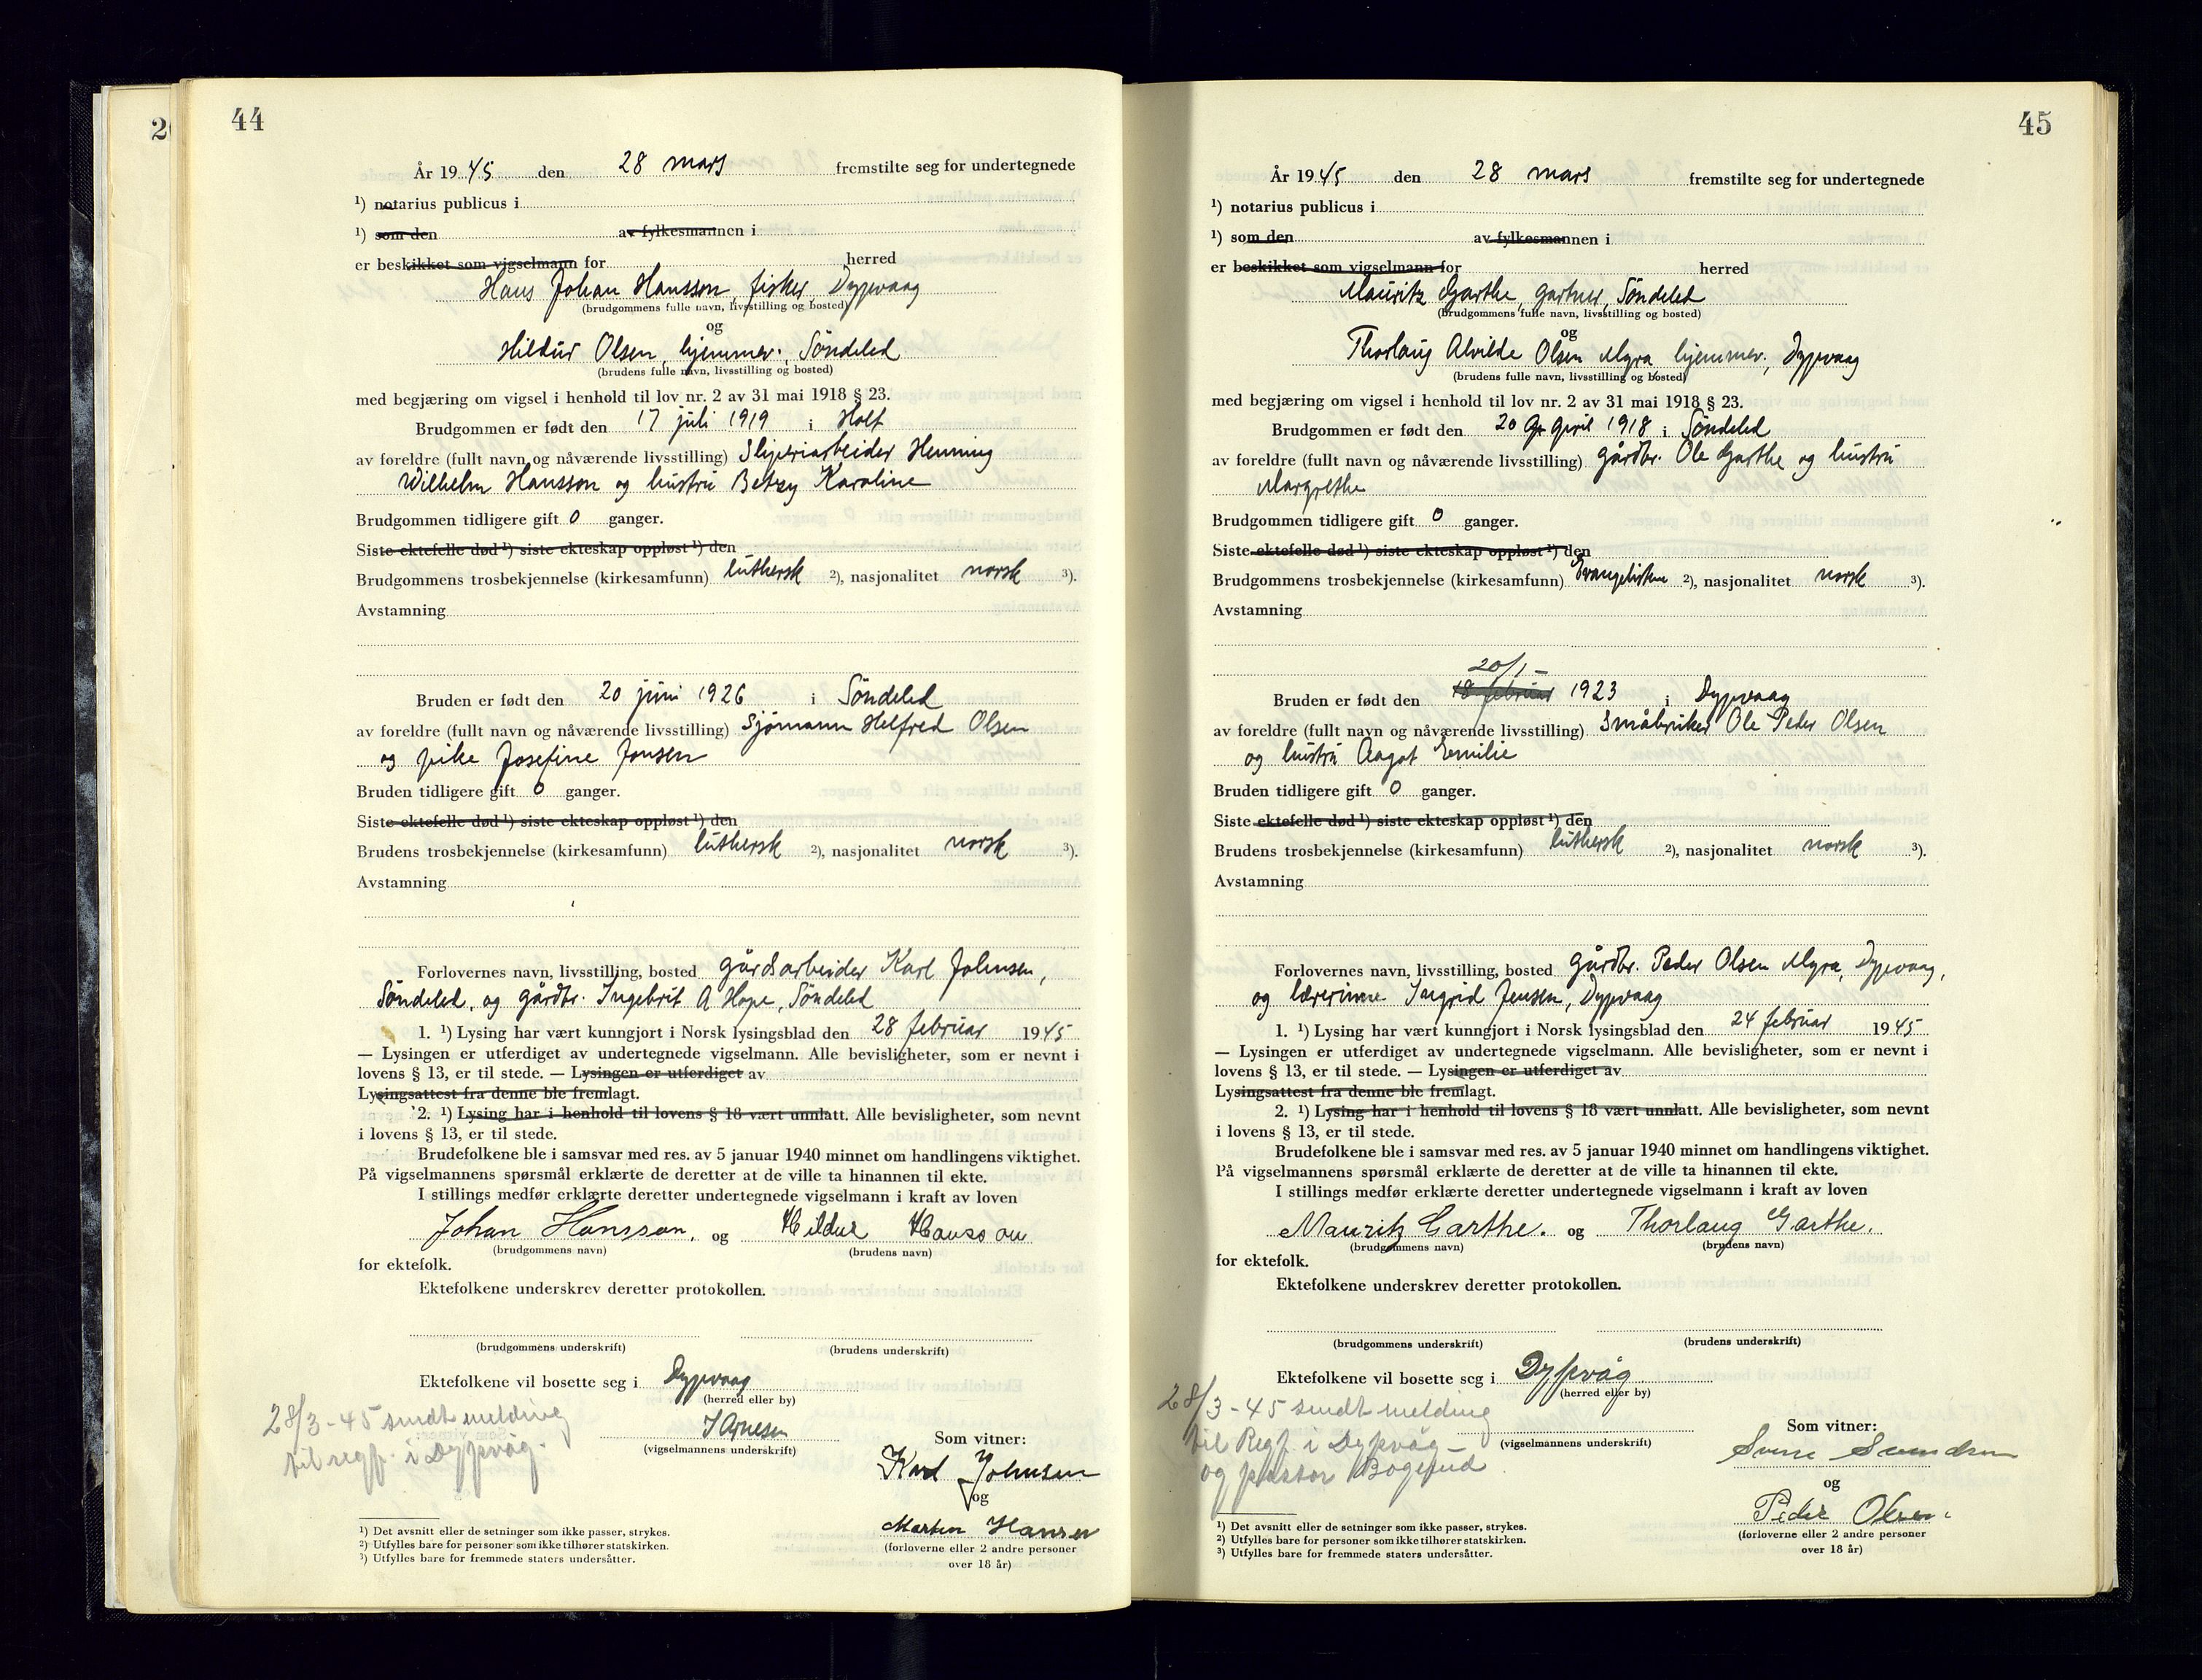 44
År 1945 den 28 mars fremstilte seg for undertegnede
1) notarius publicus i
1) som den av fylkesmannen i
er beskikket som vigselmann for herred
Hans Johan Hansson, fisker, Dypvaag
(brudgommens fulle navn, livsstilling og bosted)
og
Hildur Olsen, hjemmev., Söndeled
(brudens fulle navn, livsstilling og bosted)
med begjæring om vigsel i henhold til lov nr. 2 av 31 mai 1918 § 23.
Brudgommen er født den 17 juli 1919 i Holt
av foreldre (fullt navn og nåværende livsstilling) Sliperiarbeider Henning
Wilhelm Hansson og hustru Betzy Karoline
Brudgommen tidligere gift 0 ganger.
Siste ektefelle død 1) siste ekteskap oppløst 1) den
Brudgommens trosbekjennelse (kirkesamfunn) luthersk 2), nasjonalitet norsk 3).
Avstamning
Bruden er født den 20 juni 1926 i Söndeled
av foreldre (fullt navn og nåværende livsstilling) Sjömann Helfred Olsen
og pike Josefine Jensen
Bruden tidligere gift 0 ganger.
Siste ektefelle død 1) siste ekteskap oppløst 1) den
Brudens trosbekjennelse (kirkesamfunn) luthersk 2), nasjonalitet norsk 3).
Avstamning
Forlovernes navn, livsstilling, bosted gårdsarbeider Karl Johnsen,
Söndeled, og gårdbr. Ingebrit A Hope, Söndeled
1. 1) Lysing har vært kunngjort i Norsk lysingsblad den 28 februar 1945
— Lysingen er utferdiget av undertegnede vigselmann. Alle bevisligheter, som er nevnt i
lovens § 13, er til stede. — Lysingen er utferdiget av
Lysingsattest fra denne ble fremlagt.
2. 1) Lysing har i henhold til lovens § 18 vært unnlatt. Alle bevisligheter, som nevnt
i lovens § 13, er til stede.
Brudefolkene ble i samsvar med res. av 5 januar 1940 minnet om handlingens viktighet.
På vigselmannens spørsmål erklærte de deretter at de ville ta hinannen til ekte.
I stillings medfør erklærte deretter undertegnede vigselmann i kraft av loven
Johan Hansson, og Hildur Hansson
(brudgommens navn) (brudens navn)
for ektefolk.
Ektefolkene underskrev deretter protokollen.
(brudgommens underskrift) (brudens underskrift)
Ektefolkene vil bosette seg i Dypvaag
(herred eller by)
28/3-45 sendt melding
til regf. i Dypvåg.
(vigselmannens underskrift)
Som vitner:
Karl Johnsen
og
Martin Hansen
(forloverne eller 2 andre personer
over 18 år)
1) Det avsnitt eller de setninger som ikke passer, strykes.
2) Utfylles bare for personer som ikke tilhører statskirken.
3) Utfylles bare for fremmede staters undersåtter.
45
År 1945 den 28 mars fremstilte seg for undertegnede
1) notarius publicus i
1) som den av fylkesmannen i
er beskikket som vigselmann for herred
Mauritz Garthe, gartner, Söndeled
(brudgommens fulle navn, livsstilling og bosted)
og
Thorlaug Alvilde Olsen Myra hjemmev., Dypvaag
(brudens fulle navn, livsstilling og bosted)
med begjæring om vigsel i henhold til lov nr. 2 av 31 mai 1918 § 23.
Brudgommen er født den 20 april 1918 i Söndeled
av foreldre (fullt navn og nåværende livsstilling) gårdbr. Ole Garthe og hustru
Margrethe
Brudgommen tidligere gift 0 ganger.
Siste ektefelle død 1) siste ekteskap oppløst 1) den
Brudgommens trosbekjennelse (kirkesamfunn) 2), nasjonalitet norsk 3).
Avstamning
20/1-
Bruden er født den 18 februar 1923 i Dypvaag
av foreldre (fullt navn og nåværende livsstilling) Småbruker Ole Peder Olsen
og hustru Aagot Emilie
Bruden tidligere gift 0 ganger.
Siste ektefelle død 1) siste ekteskap oppløst 1) den
Brudens trosbekjennelse (kirkesamfunn) luthersk 2), nasjonalitet norsk 3).
Avstamning
Forlovernes navn, livsstilling, bosted gårdbr. Peder Olsen Myra, Dypvaag,
og lærerinne Ingrid Jensen, Dypvaag
1. 1) Lysing har vært kunngjort i Norsk lysingsblad den 24 februar 1945
— Lysingen er utferdiget av undertegnede vigselmann. Alle bevisligheter, som er nevnt i
lovens § 13, er til stede. — Lysingen er utferdiget av
Lysingsattest fra denne ble fremlagt.
2. 1) Lysing har i henhold til lovens § 18 vært unnlatt. Alle bevisligheter, som nevnt
i lovens § 13, er til stede.
Brudefolkene ble i samsvar med res. av 5 januar 1940 minnet om handlingens viktighet.
På vigselmannens spørsmål erklærte de deretter at de ville ta hinannen til ekte.
I stillings medfør erklærte deretter undertegnede vigselmann i kraft av loven
Mauritz Garthe. og Thorlaug Garthe.
(brudgommens navn) (brudens navn)
for ektefolk.
Ektefolkene underskrev deretter protokollen.
(brudgommens underskrift) (brudens underskrift)
Ektefolkene vil bosette seg i Dypvåg
(herred eller by)
28/3-45 sendt melding
til Regf. i Dypvåg -
og pastor
(vigselmannens underskrift)
Som vitner:
og
Peder Olsen.
(forloverne eller 2 andre personer
over 18 år)
1) Det avsnitt eller de setninger som ikke passer, strykes.
2) Utfylles bare for personer som ikke tilhører statskirken.
3) Utfylles bare for fremmede staters undersåtter.